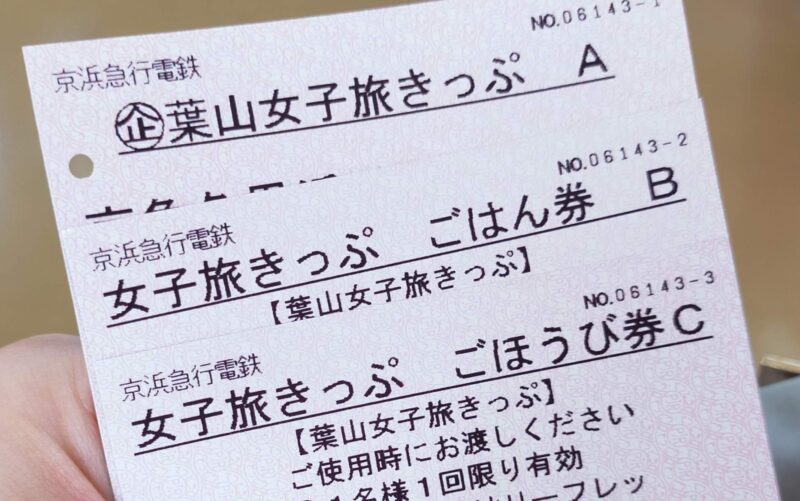 NO.06143-1
京浜急行電鉄
㊭葉山女子旅きっぷ A
NO.06143-2
京浜急行電鉄
女子旅きっぷ ごはん券 B
【葉山女子旅きっぷ】
NO.06143-3
京浜急行電鉄
女子旅きっぷ ごほうび券C
【葉山女子旅きっぷ】
ご使用時にお渡しください
1名様1回限り有効
リーフレッ